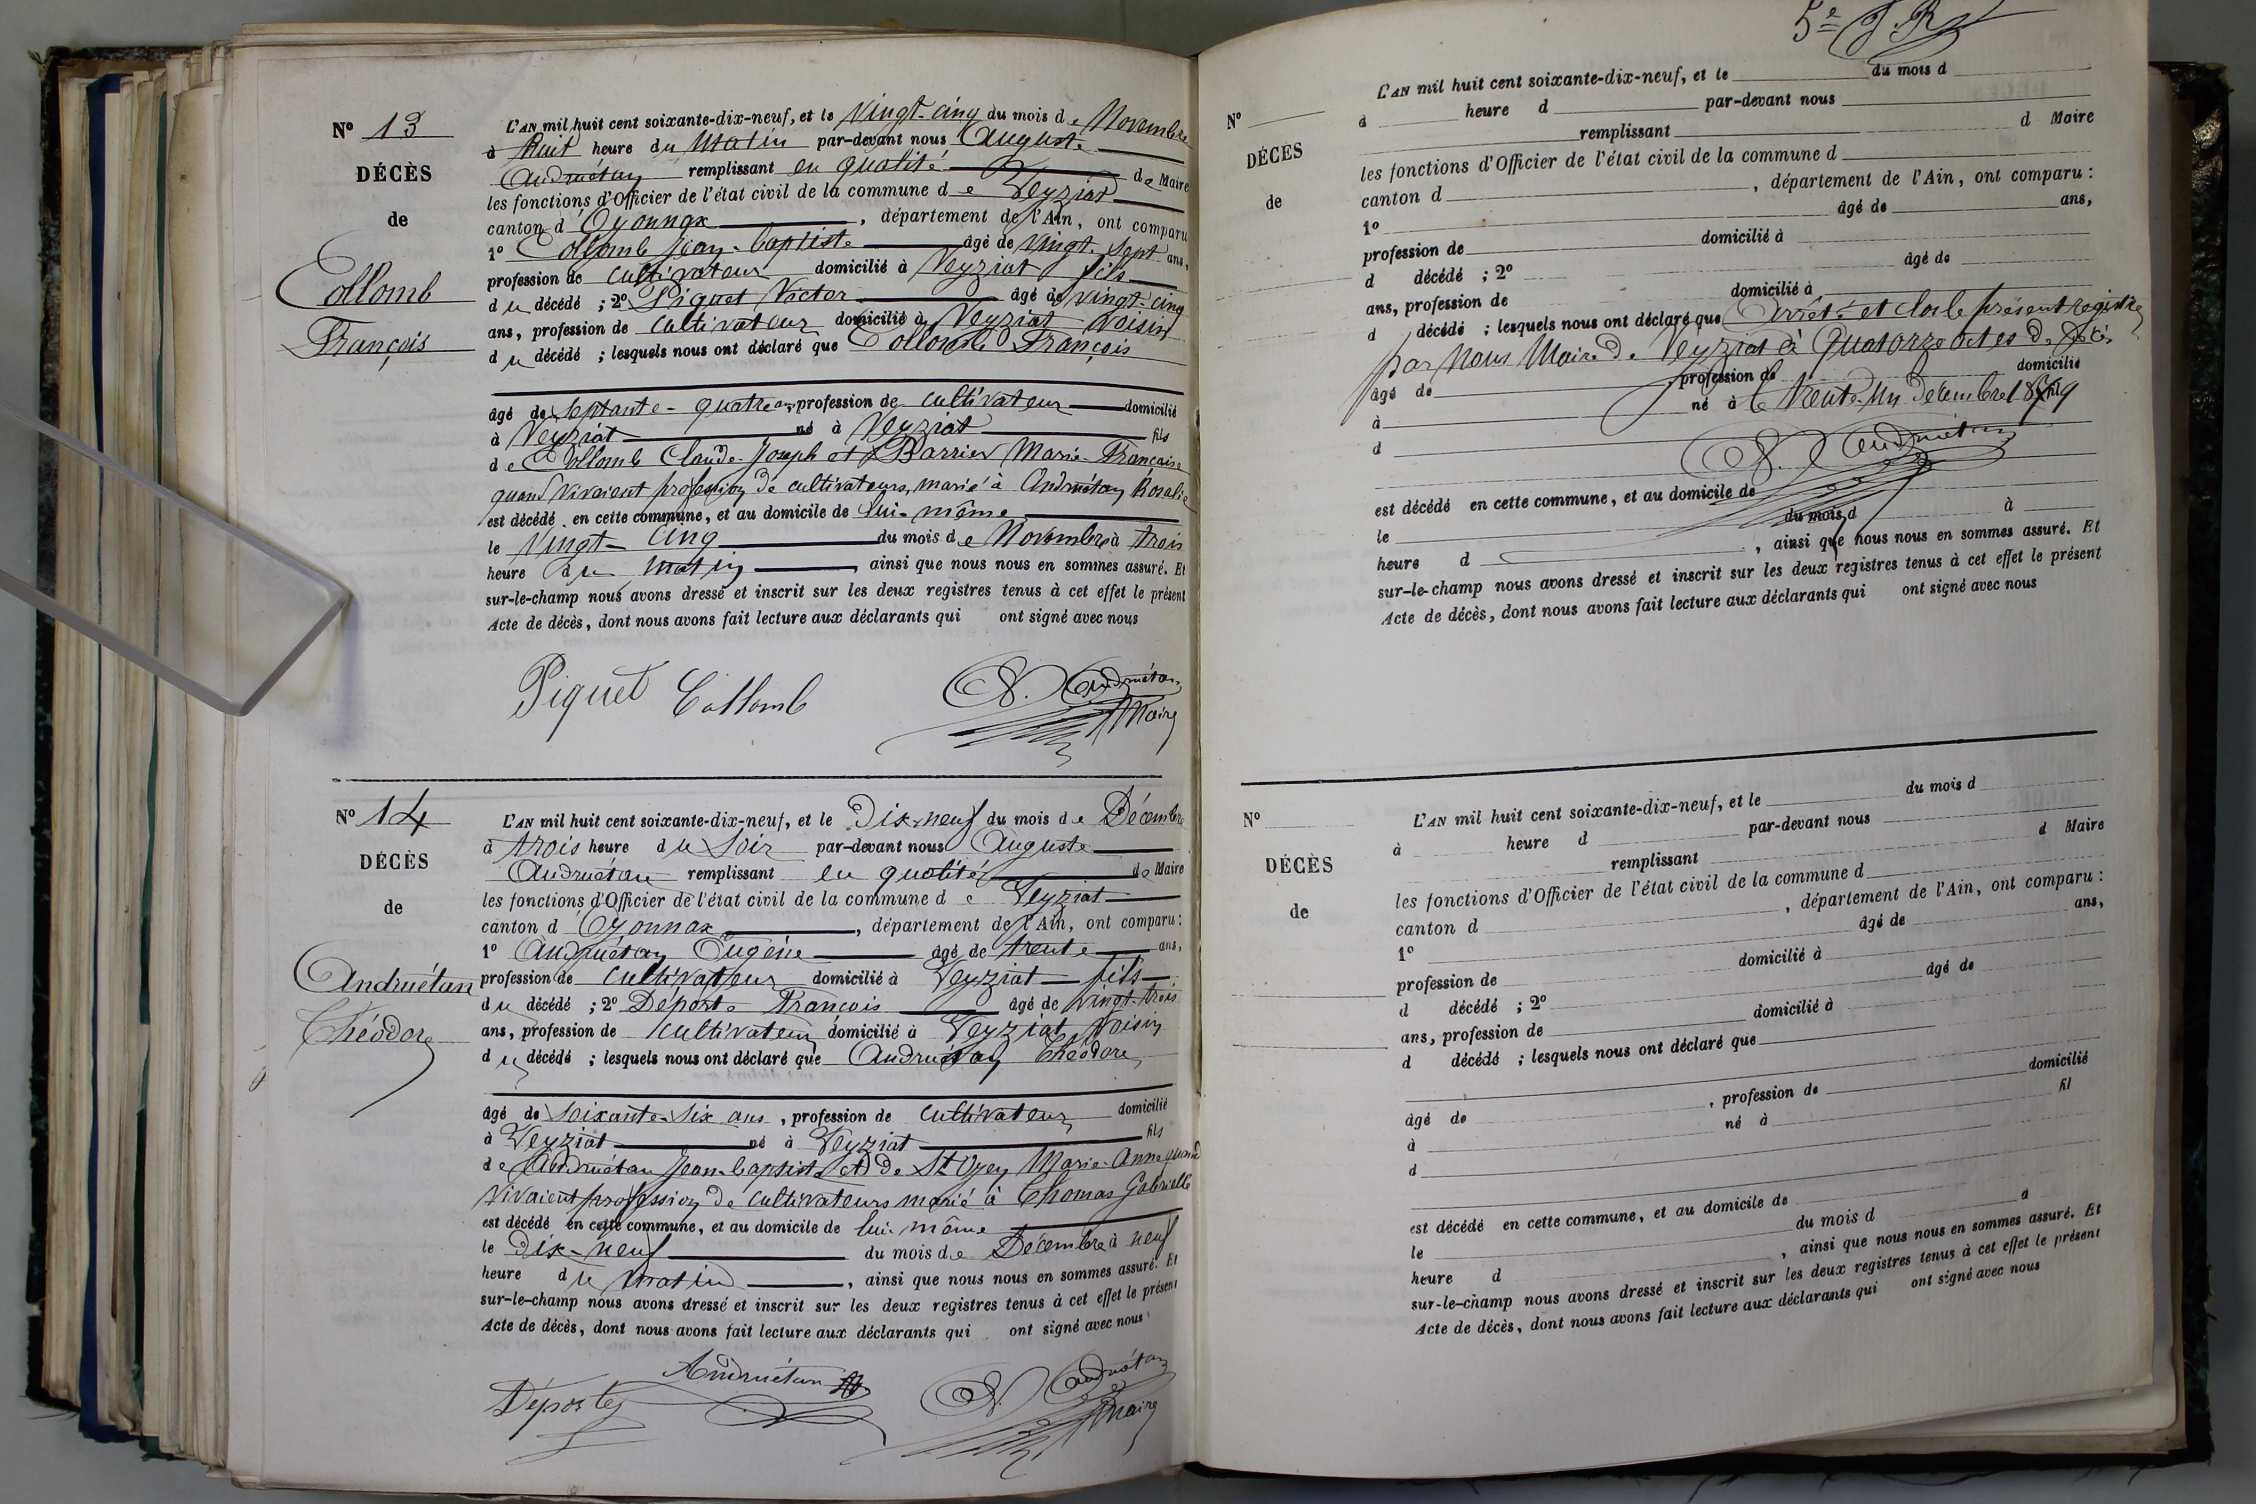 N° 13
DÉCÈS
de
Collomb
François
L'AN mil huit cent soixante-dix-neuf, et le Vingt-cinq du mois de Novembre
à huit heure du Matin par-devant nous Auguste
Andruétan remplissant en qualité de Maire
les fonctions d'Officier de l'état civil de la commune de Veyziat
canton d'Oyonnax, département de l'Ain, ont comparu
1° Collomb Jean-baptiste âgé de Vingt-sept ans,
profession de cultivateur domicilié à Veyziat fils
du décédé ; 2° Piquet Victor âgé de vingt-cinq
ans, profession de cultivateur domicilié à Veyziat voisin
du décédé ; lesquels nous ont déclaré que Collomb François
âgé de septante-quatre ans, profession de cultivateur domicilié
à Veyziat né à Veyziat fils
de Collomb Claude-Joseph et Barrier Marie-Française
quand vivaient profession de cultivateurs, marié à Andruétan Rosalie
est décédé en cette commune, et au domicile de lui-même
le Vingt-cinq du mois de Novembre à trois
heure du matin, ainsi que nous nous en sommes assuré. Et
sur-le-champ nous avons dressé et inscrit sur les deux registres tenus à cet effet le présent
Acte de décès, dont nous avons fait lecture aux déclarants qui ont signé avec nous
Piquet Collomb A. Andruétan
Maire
N° 14
DÉCÈS
de
Andruétan
Théodore
L'AN mil huit cent soixante-dix-neuf, et le Dix-neuf du mois de Décembre
à trois heure du Soir par-devant nous Auguste
Andruétan remplissant en qualité de Maire
les fonctions d'Officier de l'état civil de la commune de Veyziat
canton d'Oyonnax, département de l'Ain, ont comparu :
1° Andruétan Eugène âgé de trente ans,
profession de cultivateur domicilié à Veyziat fils
du décédé ; 2° Deporte François âgé de vingt-trois
ans, profession de cultivateur domicilié à Veyziat voisin
du décédé ; lesquels nous ont déclaré que Andruétan Théodore
âgé de soixante-six ans, profession de cultivateur domicilié
à Veyziat né à Veyziat fils
de Andruétan Jean-baptiste et de St Oyen Marie-Anne quand
vivaient profession de cultivateurs marié à Thomas Gabrielle
est décédé en cette commune, et au domicile de lui-même
le Dix-neuf du mois de Décembre à neuf
heure du matin, ainsi que nous nous en sommes assuré. Et
sur-le-champ nous avons dressé et inscrit sur les deux registres tenus à cet effet le présent
Acte de décès, dont nous avons fait lecture aux déclarants qui ont signé avec nous
Andruétan
Déportes A. Andruétan
Maire
5e
N°
DÉCÈS
de
L'AN mil huit cent soixante-dix-neuf, et le du mois d
à heure d par-devant nous
remplissant d Maire
les fonctions d'Officier de l'état civil de la commune d
canton d , département de l'Ain, ont comparu :
1° âgé de ans,
profession de domicilié à
d décédé ; 2° âgé de
ans, profession de domicilié à
d décédé ; lesquels nous ont déclaré que Arrêté et clos le présent registre
par Nous Maire de Veyziat à Quatorze actes de décès
âgé de profession de domicilié
à né à le Trente-Un Décembre 1879
d
A. Andruétan
est décédé en cette commune, et au domicile de
le du mois d à
heure d , ainsi que nous nous en sommes assuré. Et
sur-le-champ nous avons dressé et inscrit sur les deux registres tenus à cet effet le présent
Acte de décès, dont nous avons fait lecture aux déclarants qui ont signé avec nous
N°
DÉCÈS
de
L'AN mil huit cent soixante-dix-neuf, et le du mois d
à heure d par-devant nous
remplissant d Maire
les fonctions d'Officier de l'état civil de la commune d
canton d , département de l'Ain, ont comparu :
1° âgé de ans,
profession de domicilié à
d décédé ; 2° âgé de
ans, profession de domicilié à
d décédé ; lesquels nous ont déclaré que
âgé de , profession de domicilié
à né à fil
d
est décédé en cette commune, et au domicile de
le du mois d à
heure d , ainsi que nous nous en sommes assuré. Et
sur-le-champ nous avons dressé et inscrit sur les deux registres tenus à cet effet le présent
Acte de décès, dont nous avons fait lecture aux déclarants qui ont signé avec nous